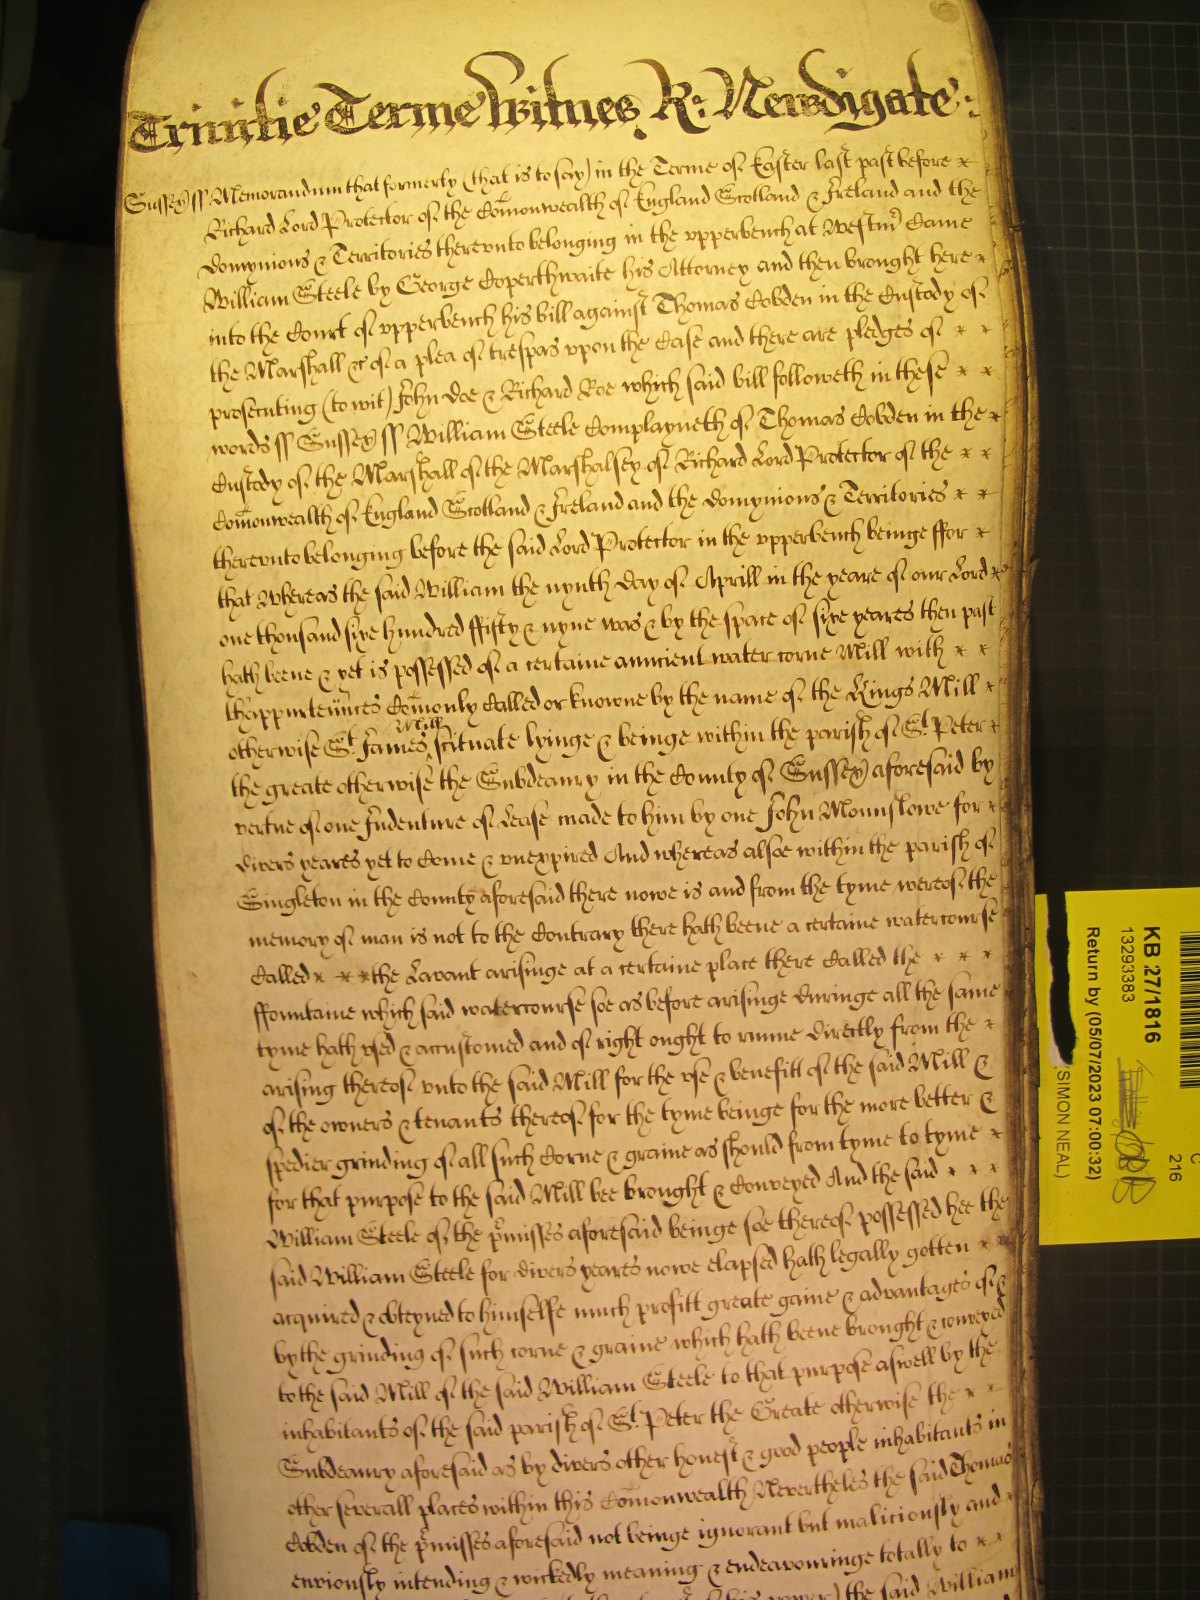 Trinitie Terme Witnes R: Newdigate:
Sussex ss Memorandum that formerly (that is to say) in the Terme of Easter last past before
Richard Lord Protector of the Comonwealth of England Scotland & Ireland and the
domynions & Territories therevnto belonging in the vpperbench at Westmr Came
William Steele by George Coperthwaite his Attorney and then brought here
into the Court of vpperbench his bill against Thomas Cobden in the Custody of
the Marshall &c of a plea of trespas vpon the Case and there are pledges of
prosecuting (to wit) John Doe & Richard Roe which said bill followeth in these
words ss Sussex ss William Steele Complayneth of Thomas Cobden in the
Custody of the Marshall of the Marshalsey of Richard Lord Protector of the
Comonwealth of England Scotland & Ireland and the domynions & Territories
therevnto belonging before the said Lord Protector in the vpperbench beinge ffor
that whereas the said William the nynth day of Aprill in the yeare of our Lord
one thousand sixe hundred ffifty & nyne was & by the space of sixe yeares then past
hath beene & yet is possessed of a certaine auncient water corne Mill with
thappurtennces Comonly Called or knowne by the name of the Kings Mill
otherwise St. James Mill scituate lyinge & beinge within the parish of St. Peter
the greate otherwise the Subdeanry in the County of Sussex aforesaid by
vertue of one Indenture of Lease made to him by one John Mounslowe for
divers yeares yet to Come & vnexpired And whereas alsoe within the parish of
Singleton in the County aforesaid there nowe is and from the tyme wereof the
memory of man is not to the Contrary there hath beene a certaine watercourse
Called the Lavant arisinge at a certaine place there Called the
ffountaine which said watercourse soe as before arisinge duringe all the same
tyme hath vsed & accustomed and of right ought to runne directly from the
arising thereof vnto the said Mill for the vse & benefitt of the said Mill &
of the owners & tenants thereof for the tyme beinge for the more better &
spedier grinding of all such Corne & graine as should from tyme to tyme
for that purpose to the said Mill bee brought & Conveyed And the said
William Steele of the pmisses aforesaid beinge soe thereof possessed hee the
said William Steele for divers yeares nowe elapsed hath legally gotten
acquired & obteyned to himselfe much profitt greate gaine & advantages of &
by the grinding of such corne & graine which hath beene brought & conveyed
to the said Mill of the said William Steele to that purpose aswell by the
inhabitants of the said parish of St. Peter the Greate otherwise the
Subdeanry aforesaid as by divers other honest & good people inhabitants in
other severall places within this Comonwealth Nevertheles the said Thomas
Cobden of the pmisses aforesaid not beinge ignorant but maliciously and
enviously intending & wickedly meaning & endeavouringe totally to
his power) the said William
KB 27/1816
13293383
Return by (05/07/2023 07:00:32)
SIMON NEAL)
C
216